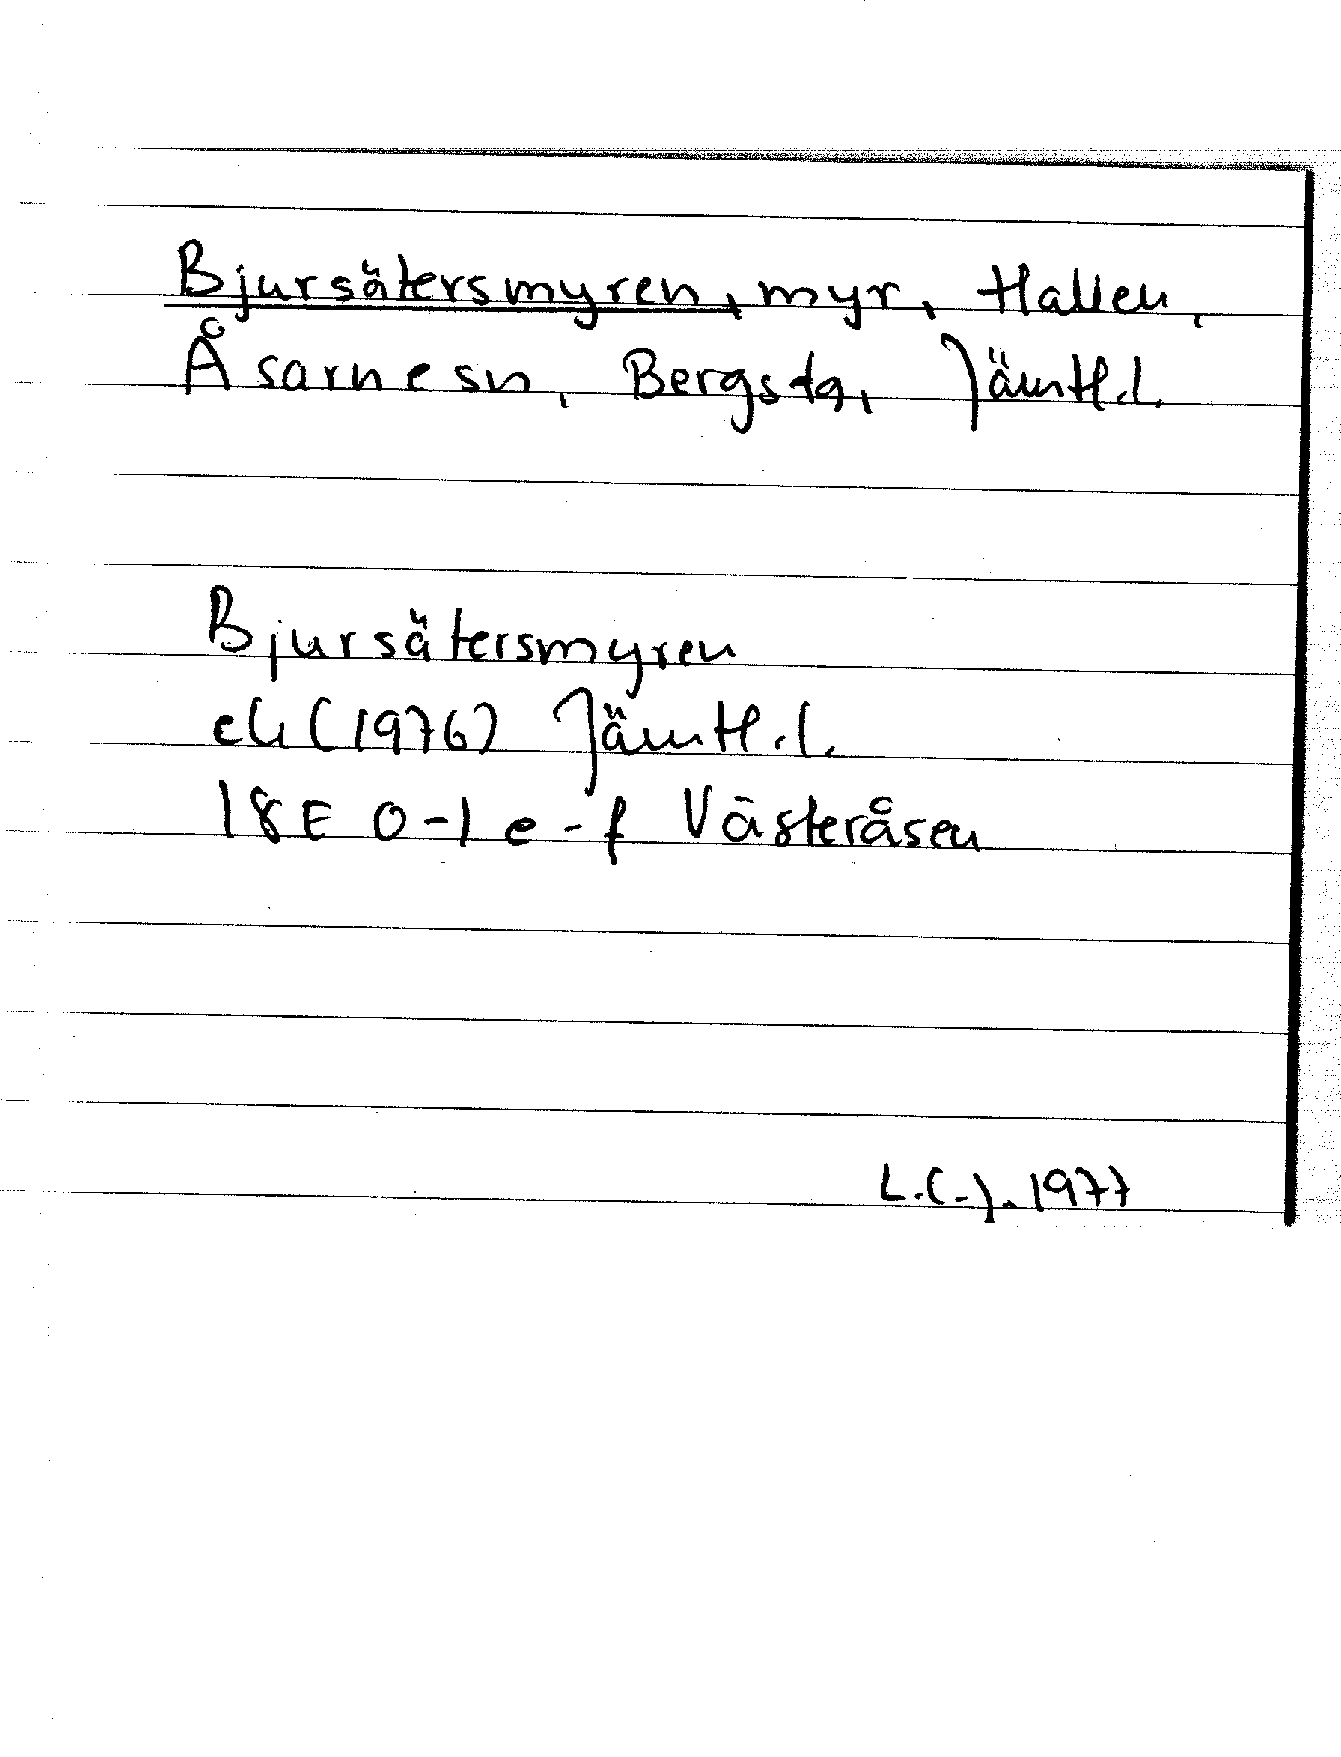 Bjursätersmyren, myr, Hallen,
Åsarnesn, Bergstg, Jämtl.l.
Bjursätersmyren
ek (1976) Jämtl.l.
18E 0-1 e-f Västeråsen
L.C-J. 1977